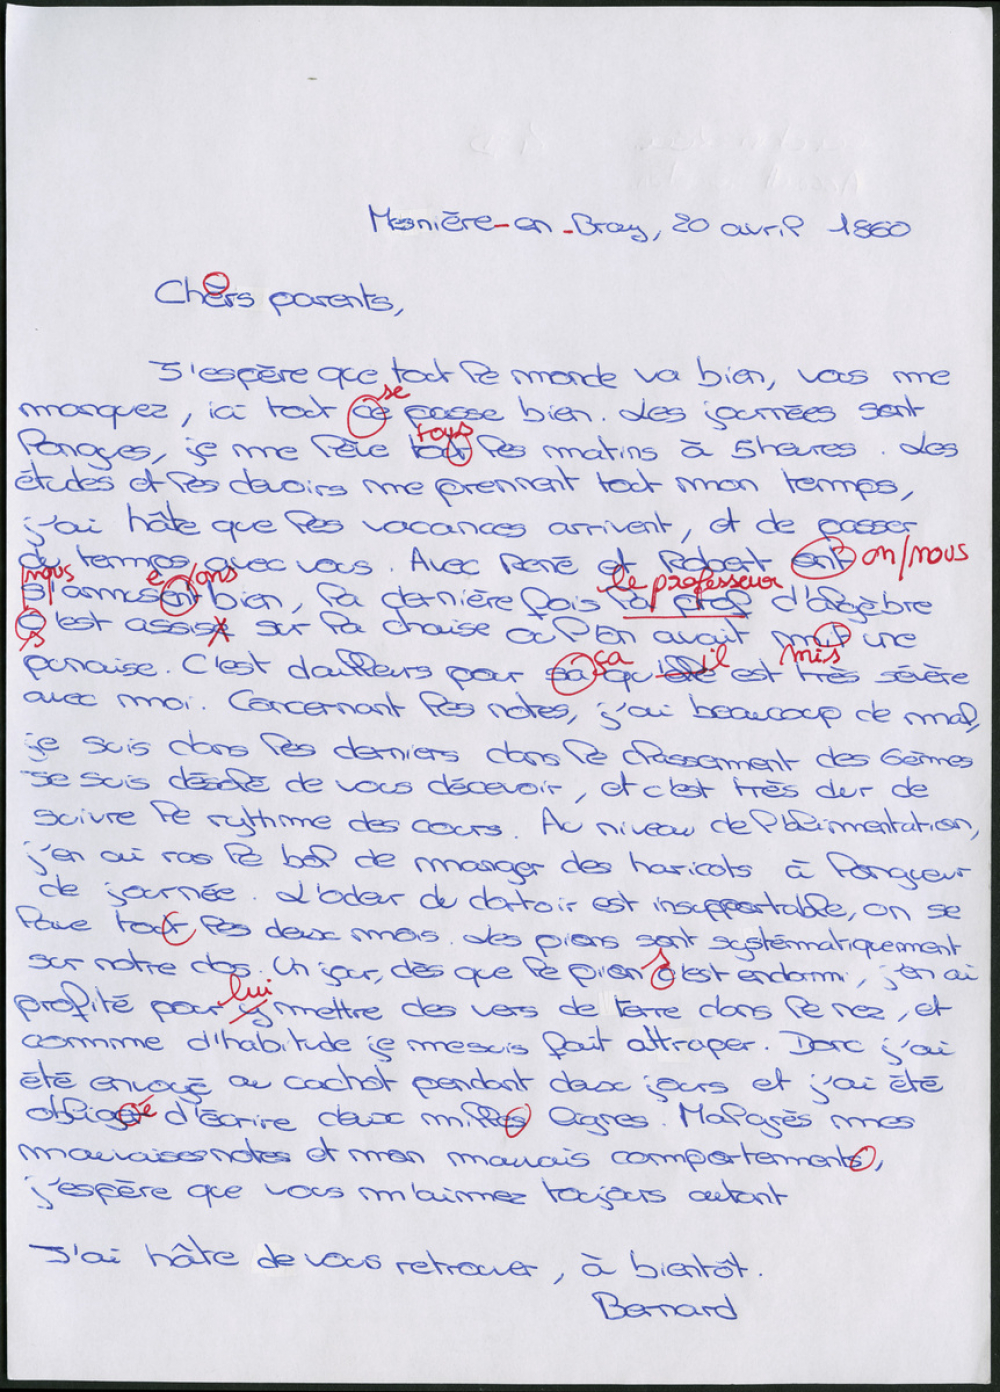 Mesnière-en-Bray, 20 avril 1860
Chèrs parents,
J'espère que tout le monde va bien, vous me
se
manquez, ici tout ce passe bien. Les journées sont
tous
longues, je me lève tout les matins à 5heures. Les
études et les devoirs me prennent tout mon temps,
j'ai hâte que les vacances arrivent, et de passer
du temps avec vous. Avec René et Robert ont on/nous
nous e/ons le professeur
s'amusent bien, la dernière fois la prof d'algèbre
c'est assise sur la chaise où l'on avait mit une
s ça il mis
punaise. C'est d'ailleurs pour sa qu'elle est très sévère
avec moi. Concernant les notes, j'ai beaucoup de mal,
je suis dans les derniers dans le classement des 6èmes
Je suis désolé de vous décevoir, et c'est très dur de
suivre le rythme des cours. Au niveau de l'alimentation,
j'en ai ras le bol de manger des haricots à longueur
de journée. L'odeur du dortoir est insupportable, on se
lave tout les deux mois. Les pions sont systématiquement
sur notre dos. Un jour, dès que le pion c'est endormi, j'en ai
s
lui
profité pour y mettre des vers de terre dans le nez, et
comme d'habitude je me suis fait attraper. Donc j'ai
été envoyé au cachot pendant deux jours et j'ai été
é
obliger d'écrire deux milles lignes. Malgrès mes
mauvaises notes et mon mauvais comportements,
j'espère que vous m'aimez toujours autant
J'ai hâte de vous retrouver, à bientôt.
Bernard